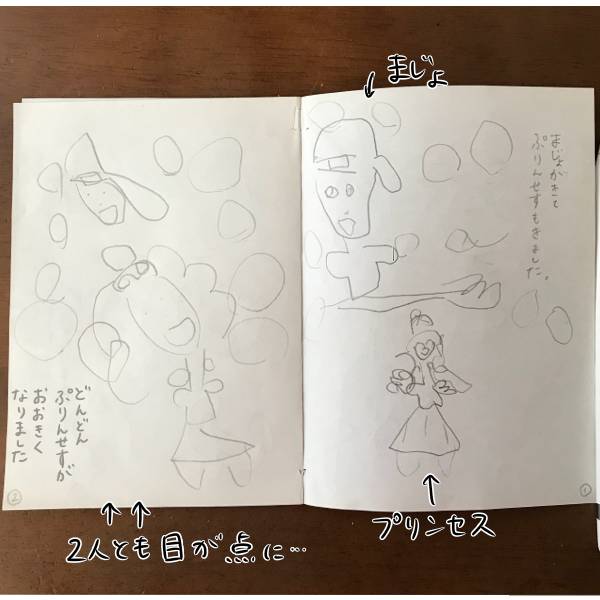 まじょ
まじょがきて
ぷりんせすもきました。
①
プリンセス
どんどん
ぷりんせすが
おおきく
なりました
②
2人とも目が点に…